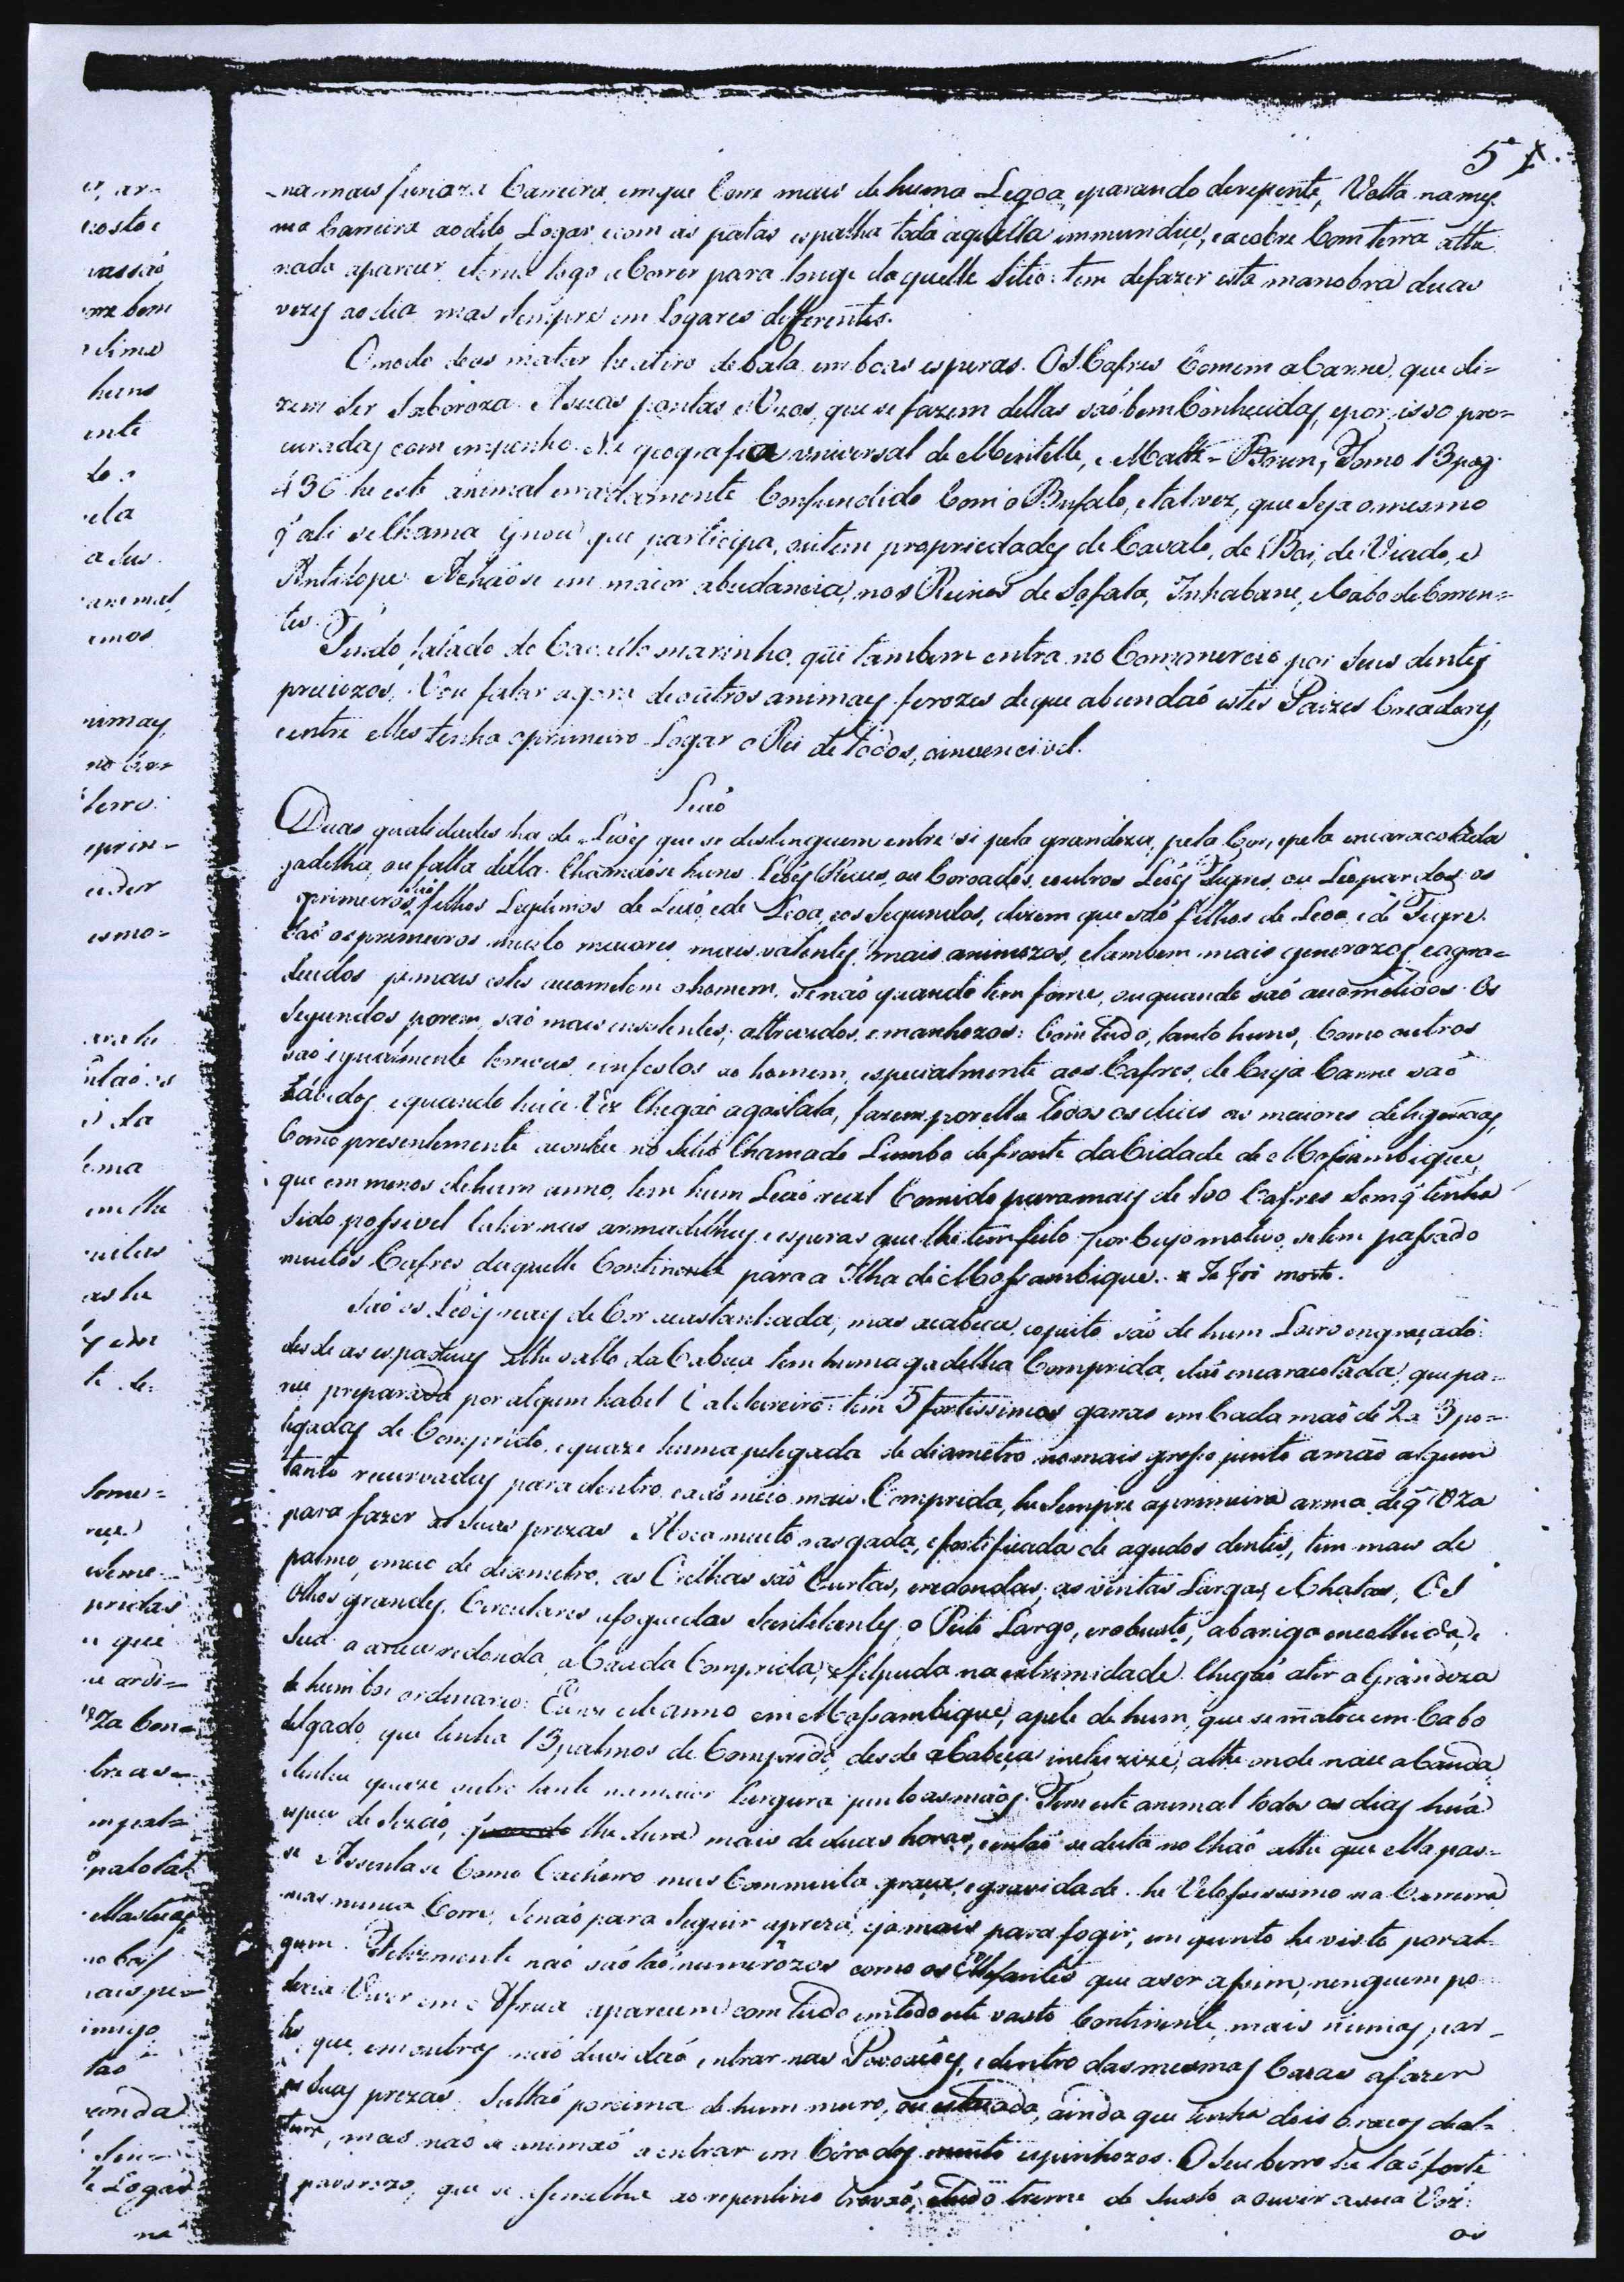 51.
na mais furioza Carreira, em que Corre mais de huma Legoa, e parando derepente, Volta na mes
ma Carreira ao dito Logar, e com as patas espalha toda aquella immundice, e a cobre Com terra athe
nada aparecer, e torna logo a Correr para longe daquelle Sitio: tem de fazer esta manobra duas
vezes ao dia mas Sempre em Logares differentes.
O modo de os matar he a tiro de bala em boas esperas. Os Cafres Comem a Carne, que di=
zem Ser Saboroza. As suas pontas, e Uzos, que se fazem dellas saõ bem Conhecidas, e por isso pro=
curadas com empenho. Na geografia universal de Mentelle, e Malte-Brun, Tomo 13 pag.
436 he este animal erradamente Confundido Com o Bufalo, e talvez, que Seja o mesmo
q̃ ali se Chama Gnou que participa, ou tem propriedades de Cavalo, de Boi, de Viado, e
Antilope. Achaõ se em maior abudancia, nos Reinos de Sofala, Inhabane, e Cabo de Corren=
tes.
Tendo falado do Cavallo marinho, que tambem entra no Commercio por Seus dentes
preciozos, Vou falar agora de outros animaes ferozes de que abundaõ estes Paizes Creadores,
e entre elles tenha o primeiro Logar o Rei de todos, o invencivel.
Leaõ
Duas qualidades ha de Leões que se destinguem entre si pela grandeza, pela Cor, e pela encaracolada
gadelha, ou falta della. Chamaõ se huns Leões Reaes, ou Coroados, e outros Leões Tigres, ou Leopardos: os
primeiros saõ filhos Legitimos de Leaõ, e de Leoa, e os Segundos, dizem que saõ filhos de Leoa, e de Tigre.
Saõ os primeiros muito maiores, mais valentes, mais animozos, e tambem mais generozos, e agra=
decidos jamais estes acometem o homem, Senaõ quando tem fome, ou quando saõ acometidos. Os
Segundos porem, saõ mais insolentes, attrevidos, e manhozos: Com tudo, tanto huns, Como outros
saõ igualmente terriveis, e infestos ao homem, especialmente aos Cafres, de Cuja Carne saõ
avidos, e quando huã Vez Chegaõ a gostala, fazem por ella todos os dias as maiores deligencias,
Como presentemente acontece no Sitio Chamado Lumbo defronte da Cidade de Mossambique,
que em menos de hum anno, tem hum Leaõ real Comido para mais de 100 Cafres Sem q̃ tenha
Sido possivel Cahir nas armadilhas, e esperas que lhe tem feito por Cujo motivo, se tem passado
muitos Cafres daquelle Continente para a Ilha de Mossambique. x Ja foi morto.
Saõ os Leões reaes de Cor acastanhada, mas a Cabeça, e o peito, saõ de hum Louro engraçado:
desde as espadoas athe o alto da Cabeça tem huma gadelha Comprida, e taõ encaracolada, que pa=
rece preparada por algum habel Cabeleireiro: tem 5 fortissimas garras em Cada maõ de 2 a 3 po=
legadas de Comprido, e quaze huma polegada de diametro no mais grosso junto a maõ algum
tanto recurvadas para dentro, e a do meio mais Comprida, he Sempre a primeira arma de q̃ Uza
para fazer as Suas prezas. A boca muito rasgada, e fortificada de agudos dentes, tem mais de
palmo, e meio de diametro, as Orelhas saõ Curtas, e redondas, as ventas Largas, e Chatas, Os
Olhos grandes, Circulares, afogueados Santilantes, o Peito Largo, e robusto, a bariga encolhida, e
Sua a anca redonda, a Cauda Comprida, e felpuda na extrimidade. Chegaõ a ter a Grandeza
de hum boi ordinario. Eu vi este anno em Mossambique, a pele de hum, que se matou em Cabo
delgado, que tinha 13 palmos de Comprido, desde a Cabeça incluzive, athe onde nace a Cauda,
e tinha quaze outro tanto na maior Largura junto as maõs. Tem este animal todos os dias huã
espece de Sezaõ, que lhe dura mais de duas horas, e entaõ se deita no Chaõ athe que ella pas=
se. Assenta se Como Cachorro mas Com muita graça, e gravidade. he Velossissimo na Carreira
mas nunca Corre, Senaõ para Seguir a preza, e jamais para fogir, em quanto he visto por al=
guem. Felizmente naõ saõ taõ numerozos como os Elefantes que a ser assim, nenguem po=
deria Viver em Africa: aparecem com tudo em todo este vasto Continente, mais n'umas par=
tes, que em outras, naõ duvidaõ entrar nas Povoações, e dentro das mesmas Cazas a fazer
as Suas prezas. Saltaõ por cima de hum muro, ou estacada, ainda que tenha dois braços de al=
tura, mas naõ se animaõ a entrar em Cerrados muito espinhozos. O Seu berro he taõ forte
e pavorozo, que se assemelha ao repentino trovaõ; tudo treme de Susto a ouvir a sua Voz:
os